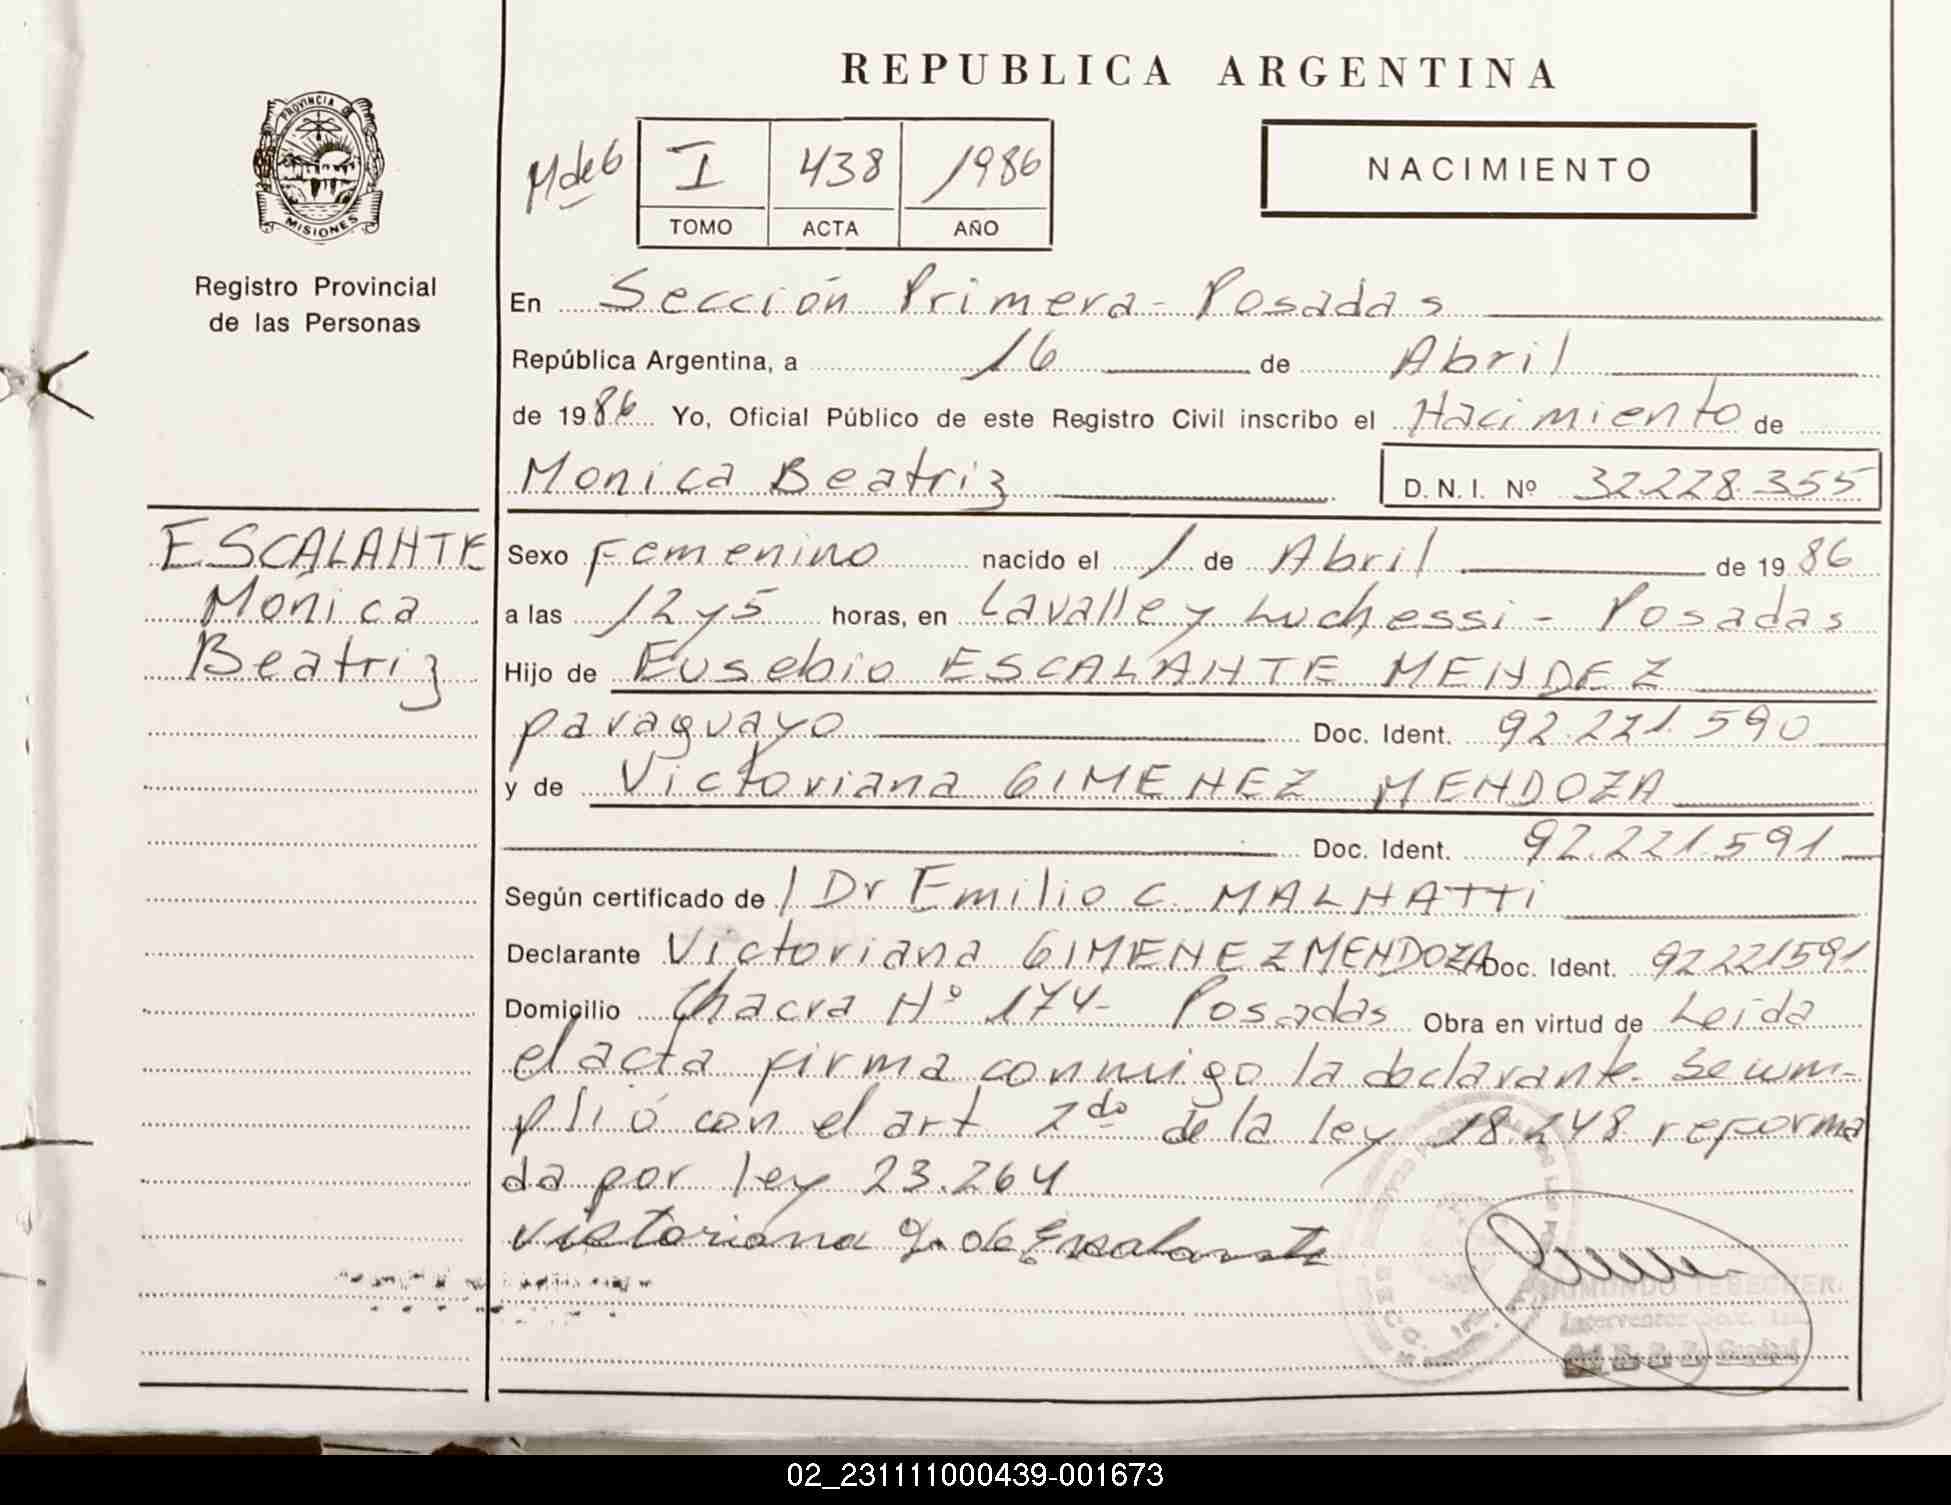 REPUBLICA ARGENTINA
PROVINCIA DE
MISIONES
Registro Provincial
de las Personas
M de 6
I 438 1986
TOMO ACTA AÑO
NACIMIENTO
En Sección Primera - Posadas
República Argentina, a 16 de Abril
de 1986 Yo, Oficial Público de este Registro Civil inscribo el Nacimiento de
Monica Beatriz D. N. I. Nº 32.228.355
ESCALANTE
Monica
Beatriz
Sexo Femenino nacido el 1 de Abril de 1986
a las 12 y 5 horas, en Lavalle y Luchessi - Posadas
Hijo de Eusebio ESCALANTE MENDEZ
paraguayo Doc. Ident. 92.221.590
y de Victoriana GIMENEZ MENDOZA
Doc. Ident. 92.221.591
Según certificado de Dr Emilio C. MALNATTI
Declarante Victoriana GIMENEZ MENDOZA Doc. Ident. 92221591
Domicilio Chacra Nº 174- Posadas Obra en virtud de Leida
el acta firma conmigo la declarante. Se cum-
plió con el art 2do de la ley 18.248 reforma
da por ley 23.264
Victoriana G. de Escalante
RAIMUNDO
Interventor Secc.
02_231111000439-001673